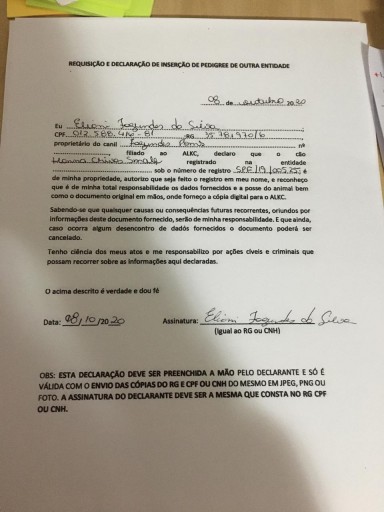 REQUISIÇÃO E DECLARAÇÃO DE INSERÇÃO DE PEDIGREE DE OUTRA ENTIDADE
08 de outubro 2020
Eu Elioni Fagundes da Silva
CPF RG
proprietário do canil Fagundes nº
filiado ao ALKC, declaro que o cão
registrado na entidade
sob o número de registro é
de minha propriedade, autorizo que seja feito o registro em meu nome, e reconheço
que é de minha total responsabilidade os dados fornecidos e a posse do animal bem
como o documento original em mãos, onde forneço a cópia digital para o ALKC.
Sabendo-se que quaisquer causas ou consequências futuras recorrentes, oriundos por
informações deste documento fornecido, serão de minha responsabilidade. E que ainda,
caso ocorra algum desencontro de dados fornecidos o documento poderá ser
cancelado.
Tenho ciência dos meus atos e me responsabilizo por ações cíveis e criminais que
possam recorrer sobre as informações aqui declaradas.
O acima descrito é verdade e dou fé
Data: 08/10/2020 Assinatura: Elioni Fagundes da Silva
(Igual ao RG ou CNH)
OBS: ESTA DECLARAÇÃO DEVE SER PREENCHIDA A MÃO PELO DECLARANTE E SÓ É
VÁLIDA COM O ENVIO DAS CÓPIAS DO RG E CPF OU CNH DO MESMO EM JPEG, PNG OU
FOTO. A ASSINATURA DO DECLARANTE DEVE SER A MESMA QUE CONSTA NO RG CPF
OU CNH.